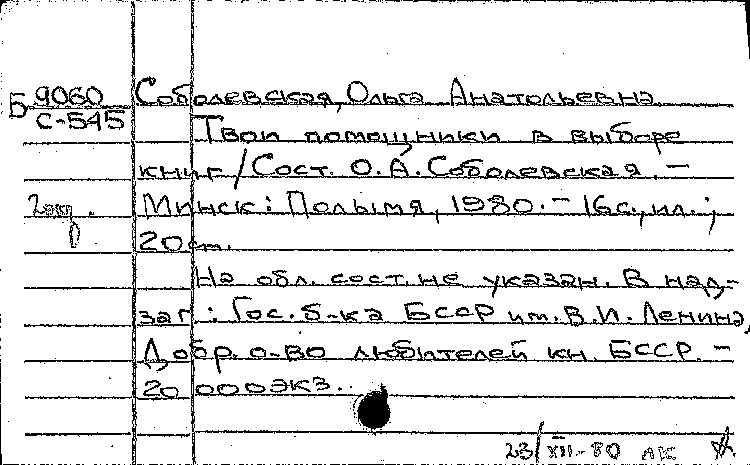 Б 9060 Соболевская, Ольга Анатольевна
С-545
Твои помощники в выборе
книг / Сост. О.А. Соболевская. –
2 экз. Минск: Полымя, 1980. – 16 с., ил.;
20 см.
На обл. сост. не указан. В над-
заг: Гос. б-ка БССР им. В.И. Ленина,
Добр. о-во любителей кн. БССР. –
20 000 экз.
23/XII-80 лк